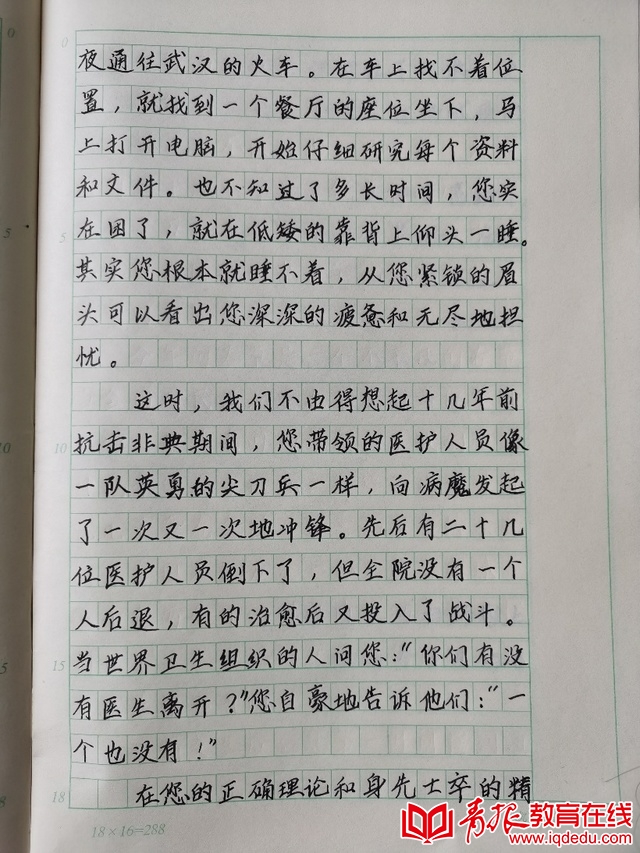 夜通往武汉的火车。在车上找不着位
置，就找到一个餐厅的座位坐下，马
上打开电脑，开始仔细研究每个资料
和文件。也不知过了多长时间，您实
在困了，就在低矮的靠背上仰头一睡。
其实您根本就睡不着，从您紧锁的眉
头可以看出您深深的疲惫和无尽地担
忧。
这时，我们不由得想起十几年前
抗击非典期间，您带领的医护人员像
一队英勇的尖刀兵一样，向病魔发起
了一次又一次地冲锋。先后有二十几
位医护人员倒下了，但全院没有一个
人后退，有的治愈后又投入了战斗。
当世界卫生组织的人问您：“你们有没
有医生离开？”您自豪地告诉他们：“一
个也没有！”
在您的正确理论和身先士卒的精
0
5
10
15
18
18×16=288
0
5
10
5
8
青报教育在线
www.iqdedu.com